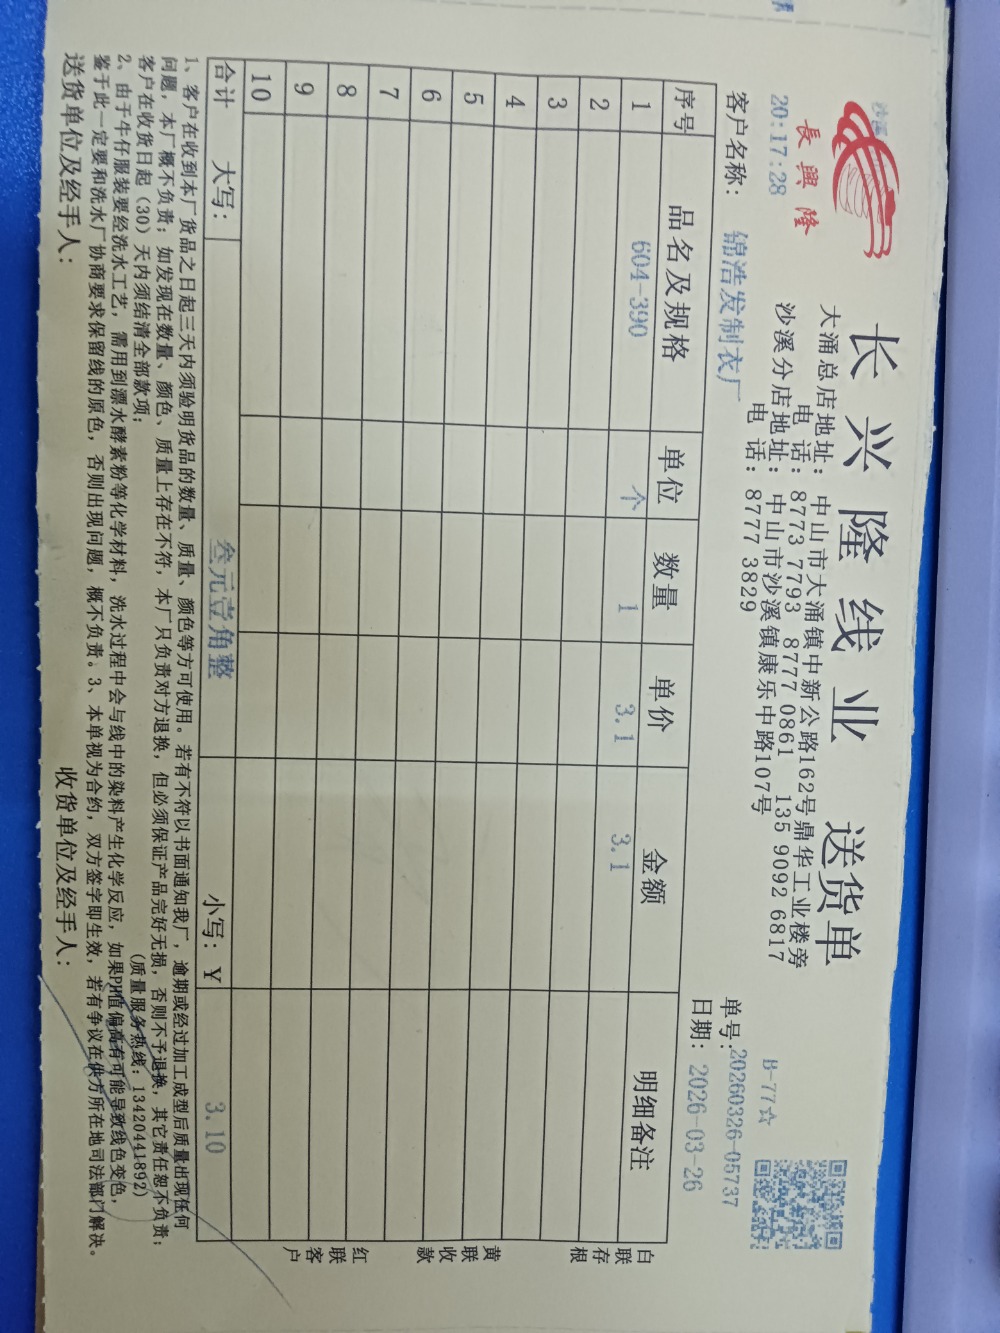 沙溪
長興隆
20:17:28
长兴隆线业 送货单
大涌总店地址：中山市大涌镇中新公路162号鼎华工业楼旁
电 话：8773 7793 8777 0861 135 9092 6817
沙溪分店地址：中山市沙溪镇康乐中路107号
电 话：8777 3829
B-77☆
单号：20260326-05737
客户名称：锦浩发制衣厂
日期：2026-03-26
序号 品名及规格 单位 数量 单价 金额 明细备注
1 604-390 个 1 3.1 3.1
2
3
4
5
6
7
8
9
10
合计 大写：叁元壹角整 小写：¥ 3.10
白联存根
黄联收款
红联客户
1、客户在收到本厂货品之日起三天内须验明货品的数量、质量、颜色等方可使用。若有不符以书面通知我厂，逾期或经过加工成型后质量出现任何
问题，本厂概不负责；如发现在数量、颜色、质量上存在不符，本厂只负责对方退换，但必须保证产品完好无损，否则不予退换，其它责任恕不负责；
客户在收货日起（30）天内须结清全部款项；
（质量服务热线：13420441892）
2、由于牛仔服装要经洗水工艺，需用到漂水酵素粉等化学材料，洗水过程中会与线中的染料产生化学反应，如果PH值偏高有可能导致线色变色，
鉴于此一定要和洗水厂协商要求保留线的原色，否则出现问题，概不负责。3、本单视为合约，双方签字即生效，若有争议在供方所在地司法部门解决。
送货单位及经手人：
收货单位及经手人：